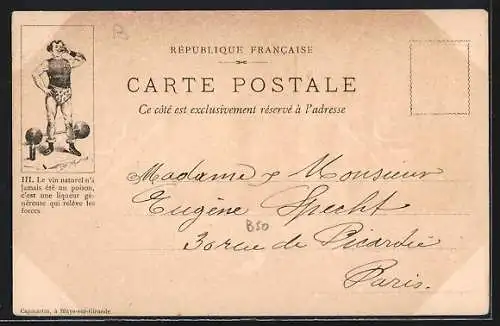 B
RÉPUBLIQUE FRANÇAISE
CARTE POSTALE
Ce côté est exclusivement réservé à l'adresse
III. Le vin naturel n'a
jamais été un poison,
c'est une liqueur gé-
néreuse qui relève les
forces
Madame & Monsieur
Eugène Specht
B50
30 rue de Picardie
Paris.
à Blaye-sur-Gironde